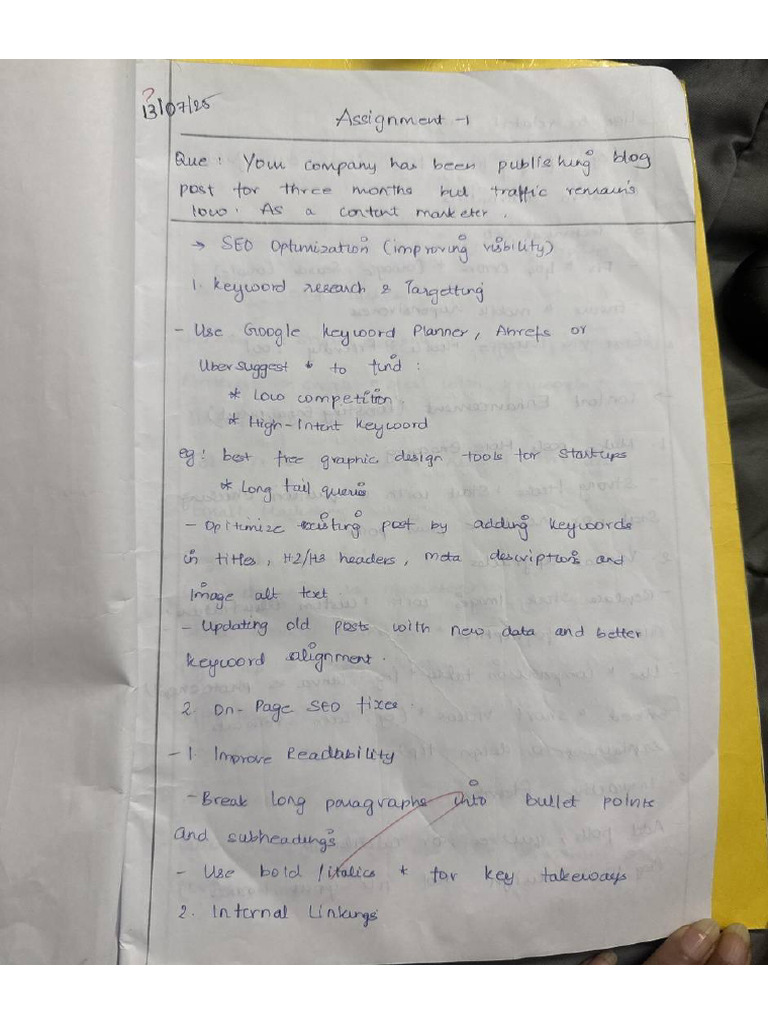 13/07/25
Assignment -1
Que: Your company has been publishing blog
post for three months but traffic remain's
low. As a content marketer.
→ SEO Optimization (improving visibility)
1. Keyword research & Targetting
- Use Google Keyword Planner, Ahrefs or
Ubersuggest * to find:
* Low competition.
* High-Intent Keyword
eg: best free graphic design tools for startups
* Long tail queries
- Opitimize existing post by adding keywords
in titles, H2/H3 headers, meta descriptions and
Image alt text.
- Updating old posts with new data and better
keyword alignment.
2. On-Page SEO fixes.
- 1. Improve Readability
- Break long paragraphs into bullet points
and subheadings
- Use bold /italics * for key takeways
2. Internal Linkings